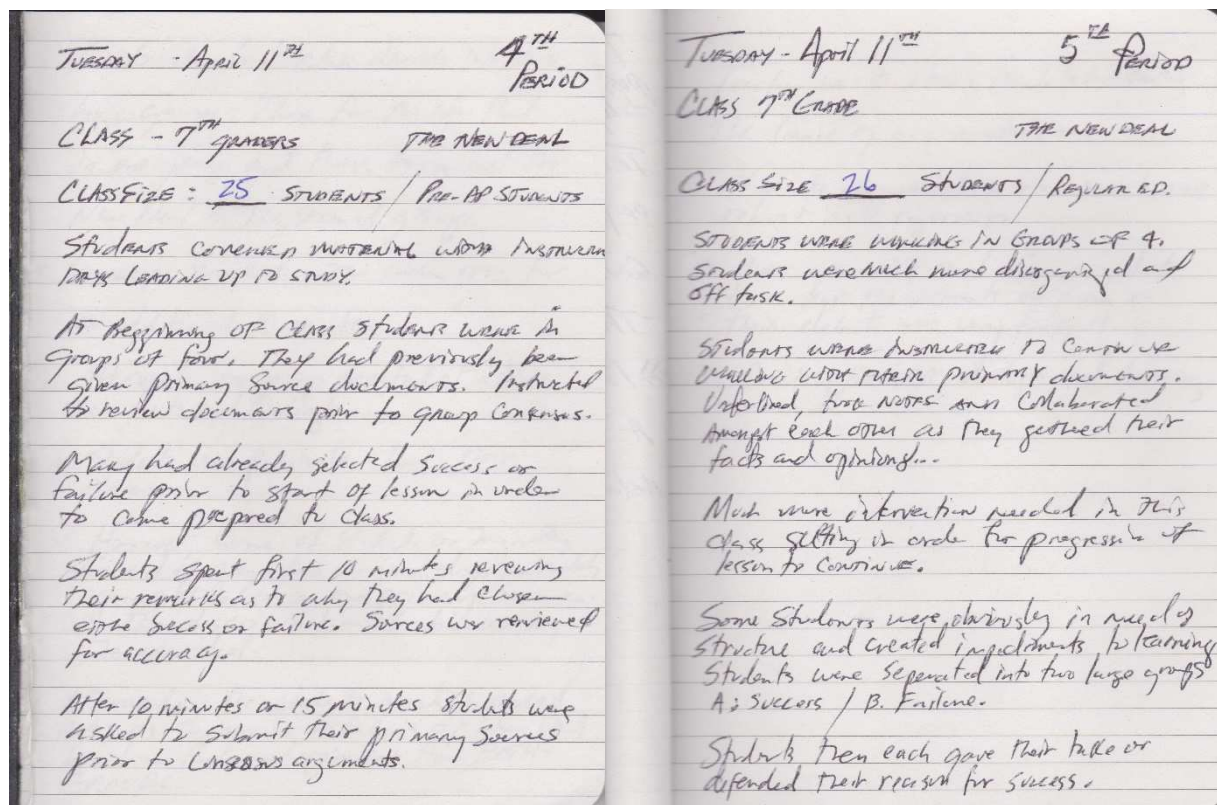 TUESDAY - April 11TH 4TH
PERIOD
CLASS - 7TH GRADERS THE NEW DEAL
CLASS SIZE: 25 STUDENTS / PRE-AP STUDENTS
Students covered material with instructor
DAYS LEADING UP TO STUDY.
At Begginning of Class students were in
groups of four. They had previously been
given primary source documents. Instructed
to review documents prior to group consensus.
Many had already selected success or
failure prior to start of lesson in order
to come prepared to class.
Students spent first 10 minutes reviewing
their remarks as to why they had chosen
either success or failure. Sources were reviewed
for accuracy.
After 10 minutes or 15 minutes students were
asked to submit their primary sources
prior to consensus arguments.
TUESDAY - April 11TH 5TH PERIOD
CLASS 7TH GRADE
THE NEW DEAL
CLASS SIZE 26 STUDENTS / REGULAR ED.
STUDENTS WERE WORKING IN GROUPS OF 4.
Students were much more disorganized and
off task.
Students were instructed to continue
working with their primary documents.
Underlined, took notes and collaborated
amongst each other as they gathered their
facts and opinions...
Much more intervention needed in this
class setting in order for progression of
lesson to continue.
Some students were obviously in need of
structure and created impediments to learning
Students were separated into two large groups
A: Success / B. Failure.
Students then each gave their take or
defended their reason for success.